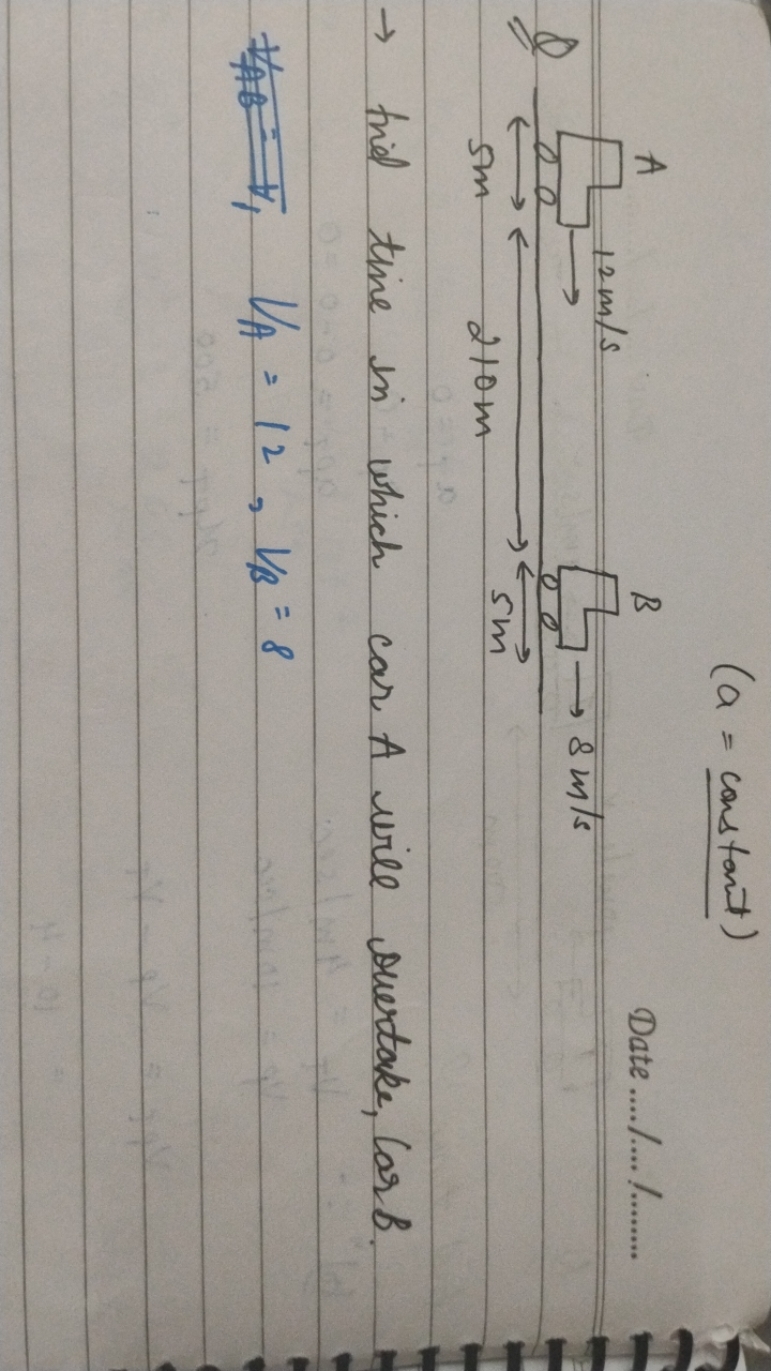 (a = constant)
Date ..../..../........
A
B
12m/s
8 m/s
5m
210m
5m
→ find time in which car A will overtake, Car B.
V_A = 12, V_B = 8